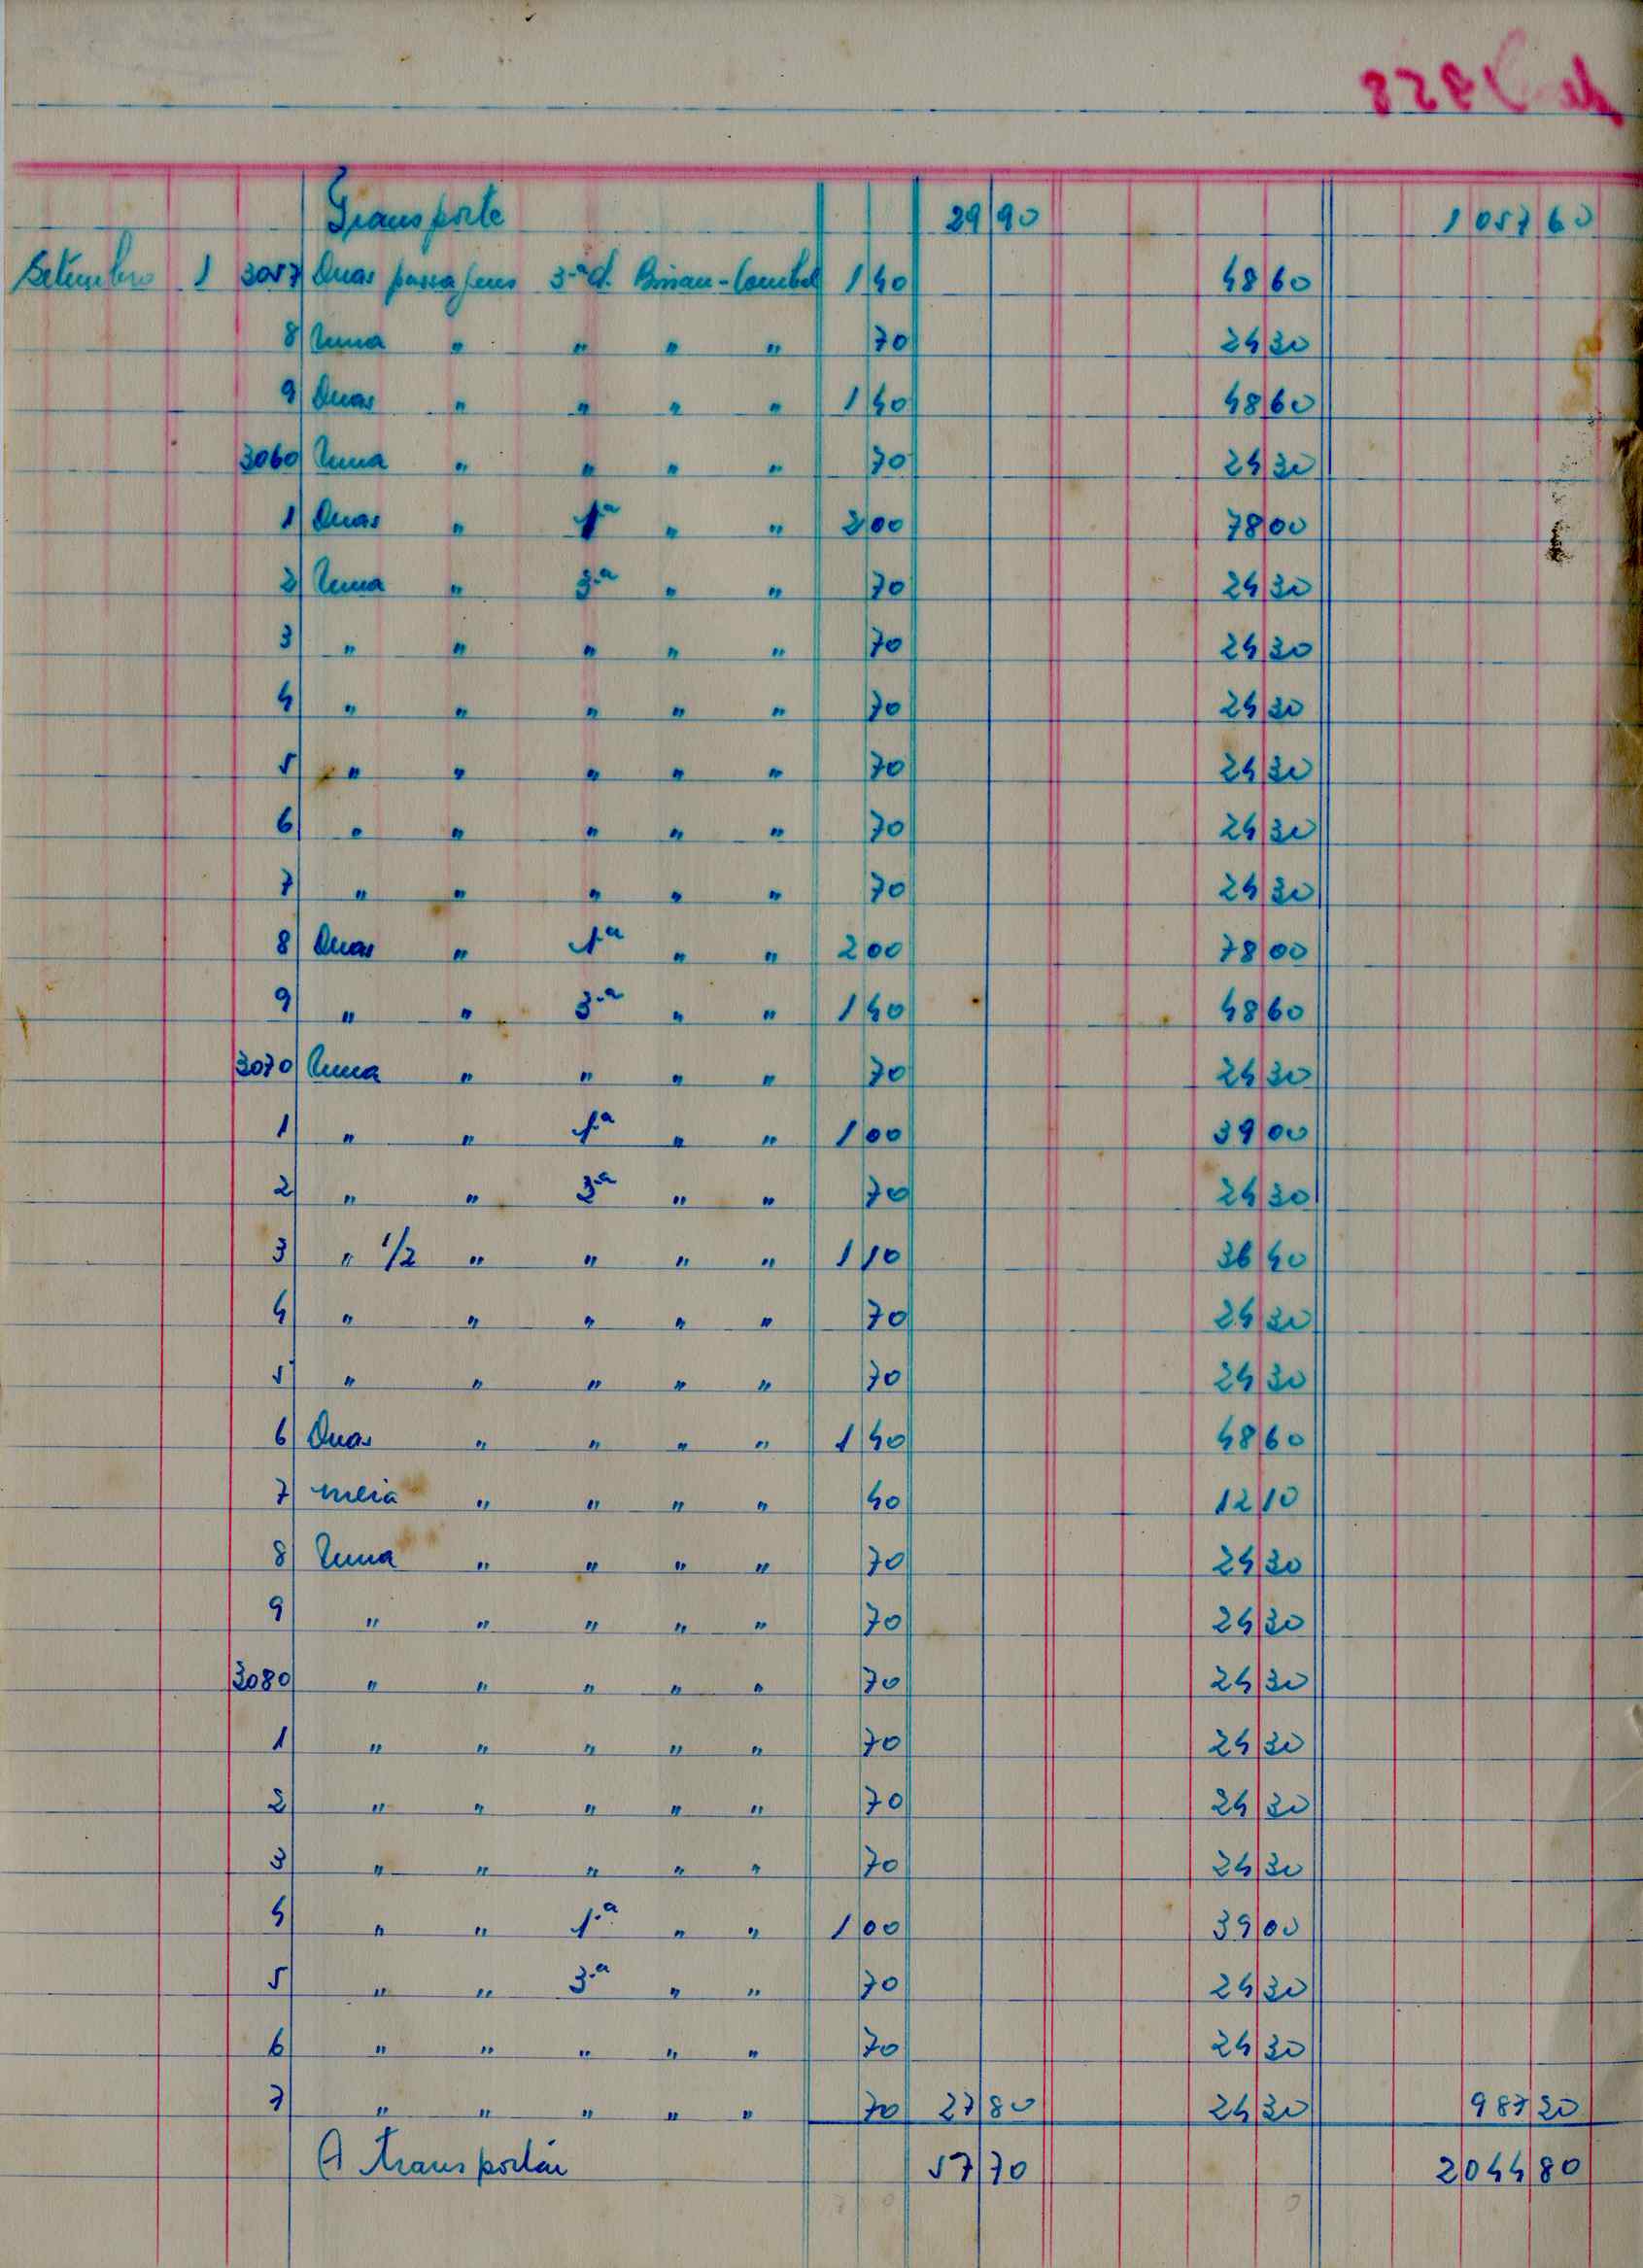 Transporte 29 90 1 057 60
Setembro 1 3057 Duas passagens 3.ª cl. Bissau- 1 40 48 60
8 Uma " " " " 70 24 30
9 Duas " " " " 1 40 48 60
3060 Uma " " " " 70 24 30
1 Duas " 1ª " " 2 00 78 00
2 Uma " 3.ª " " 70 24 30
3 " " " " " 70 24 30
4 " " " " " 70 24 30
5 " " " " " 70 24 30
6 " " " " " 70 24 30
7 " " " " " 70 24 30
8 Duas " 1ª " " 2 00 78 00
9 " " 3.ª " " 1 40 48 60
3070 Uma " " " " 70 24 30
1 " " 1ª " " 1 00 39 00
2 " " 3ª " " 70 24 30
3 " 1/2 " " " " 1 10 36 40
4 " " " " " 70 24 30
5 " " " " " 70 24 30
6 Duas " " " " 1 40 48 60
7 meia " " " " 40 12 10
8 Uma " " " " 70 24 30
9 " " " " " 70 24 30
3080 " " " " " 70 24 30
1 " " " " " 70 24 30
2 " " " " " 70 24 30
3 " " " " " 70 24 30
4 " " 1.ª " " 1 00 39 00
5 " " 3.ª " " 70 24 30
6 " " " " " 70 24 30
7 " " " " " 70 27 80 24 30 987 20
A transportar 57 70 2 044 80